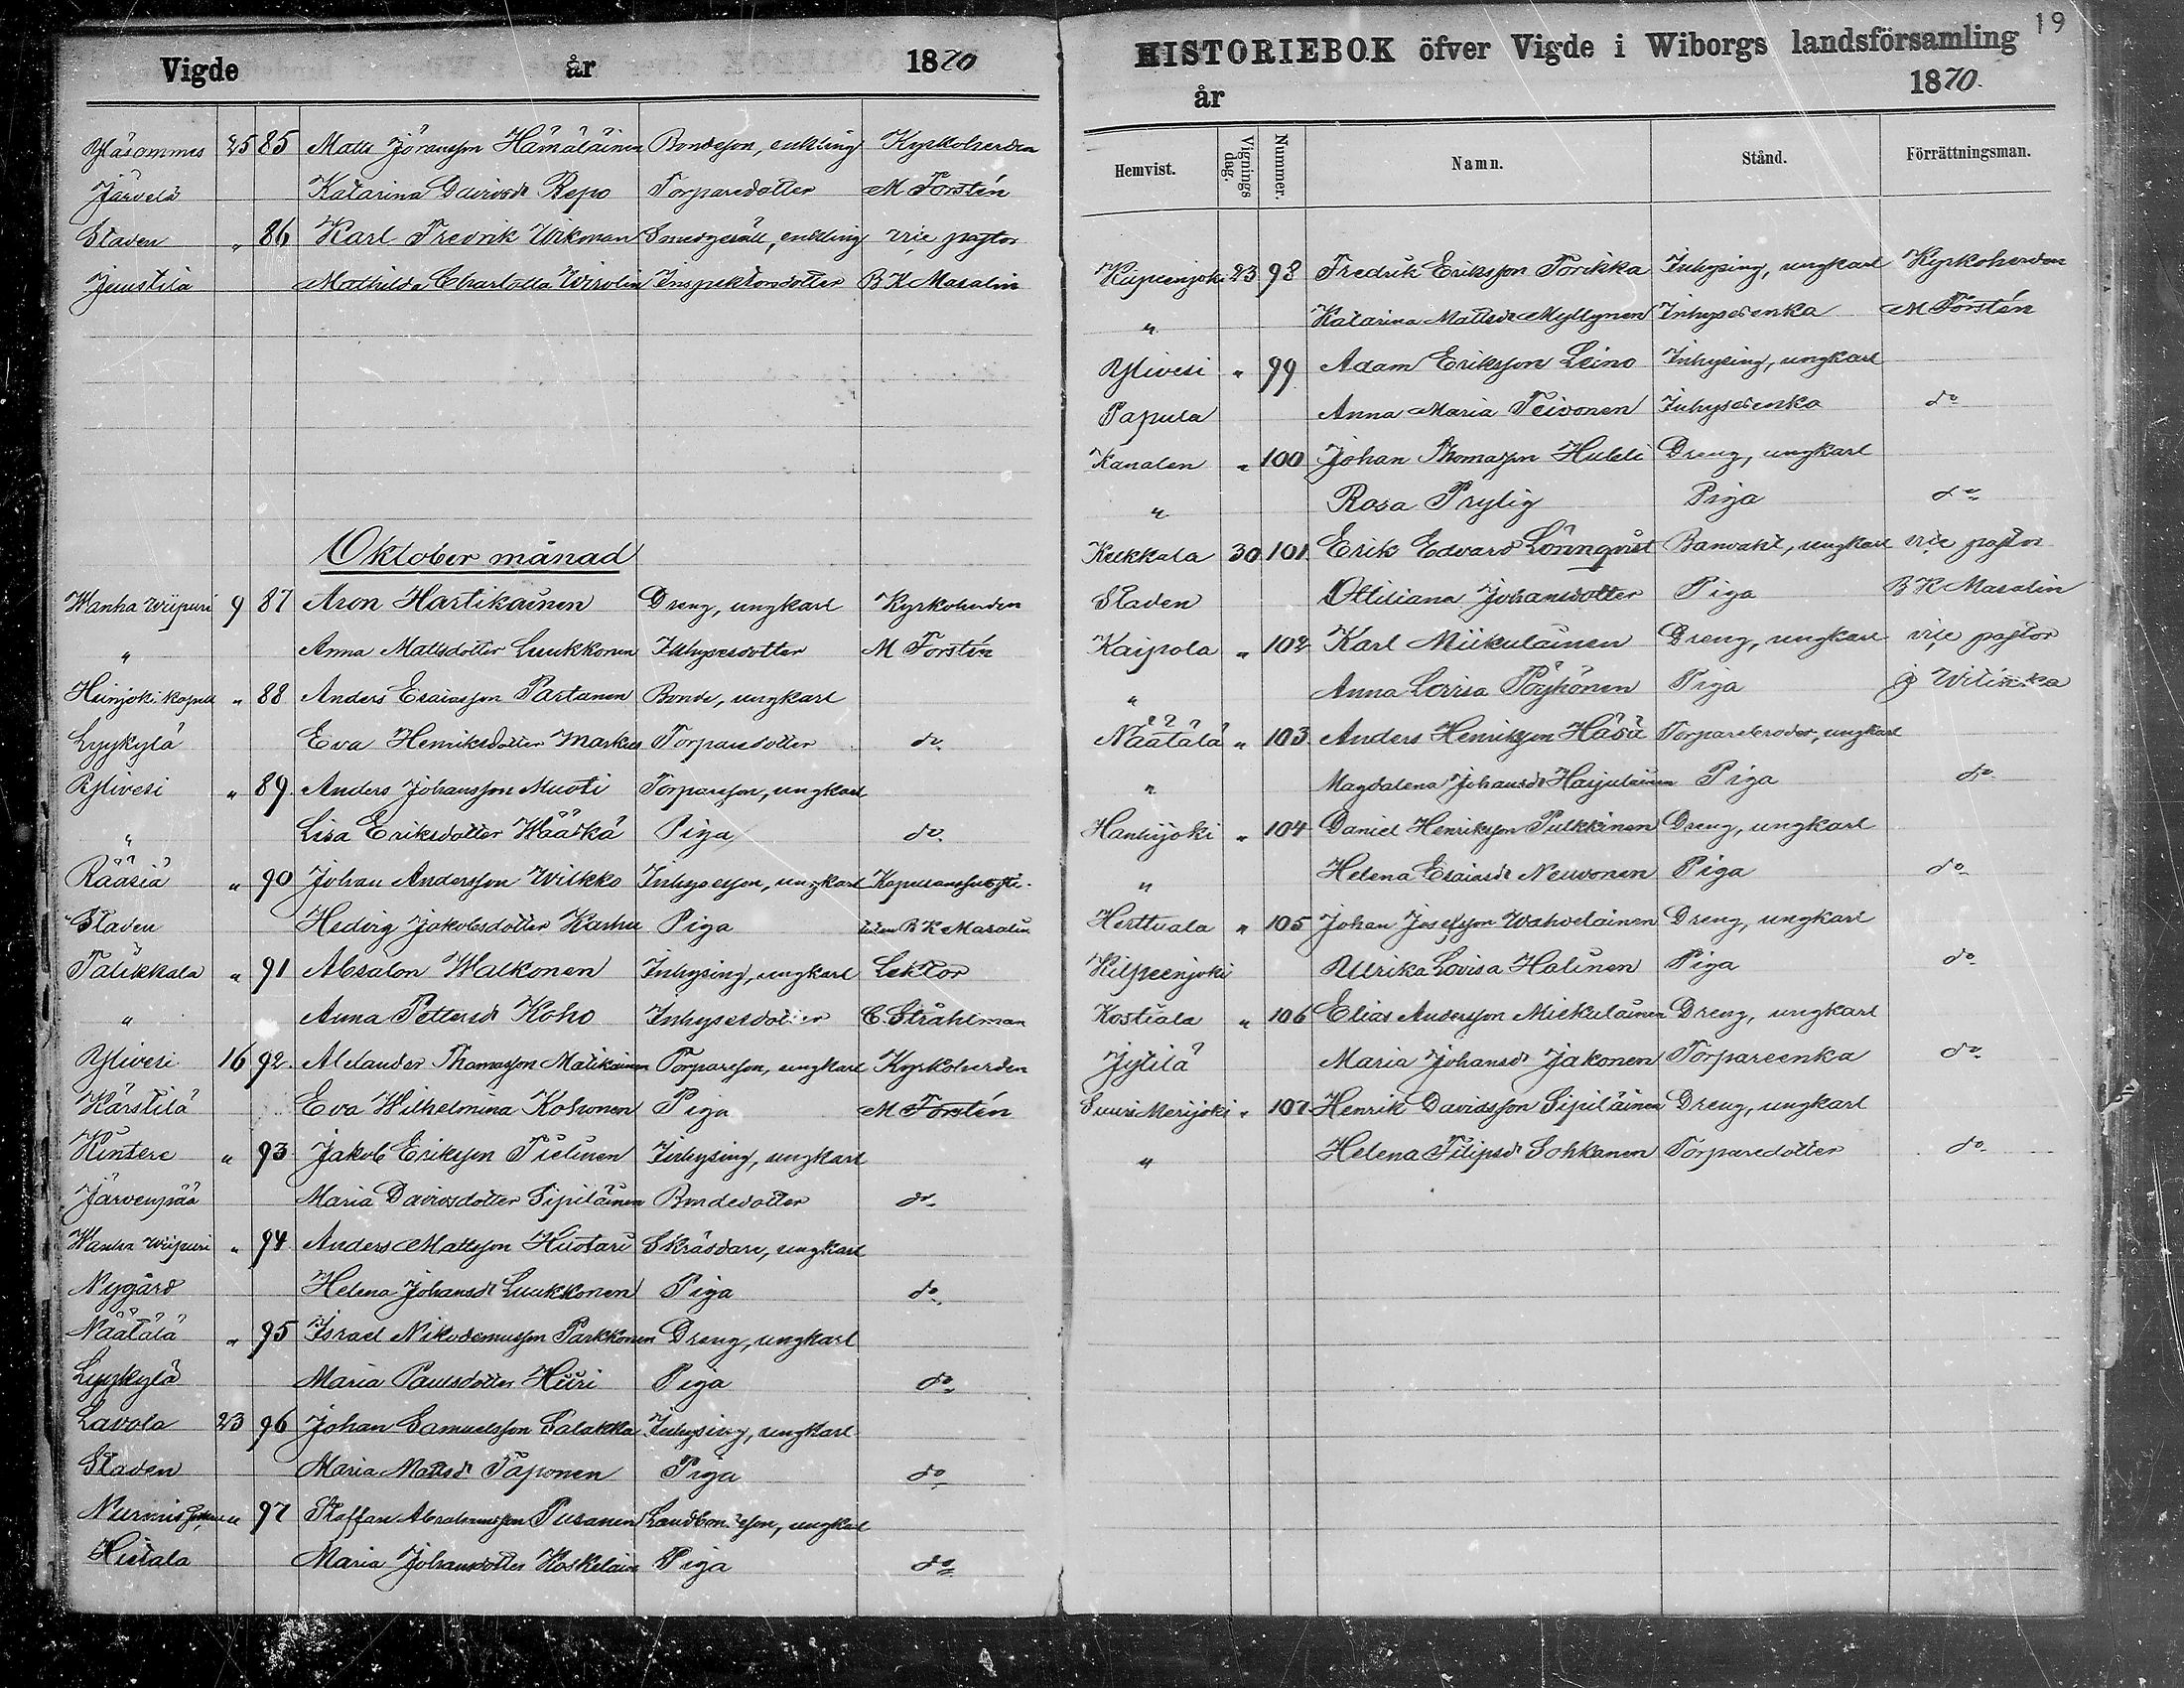 Vigde år 1870
Yläsommes 25 85 Matts Jöransson Hämäläinen Bondeson, enkling Kyrkoherden
Järvelä Katarina Davidsdr Repo Torparedotter M Forstén
Staden " 86 Karl Fredrik Wikman Smedgesäll, enkling vice pastor
Juustila Mathilda Charlotta Wirolin Inspektorsdotter B K Masalin
Oktober månad
Wanha Wiipuri 9 87 Aron Hartikainen Dreng, ungkarl Kyrkoherden
" Anna Mattsdotter Luukkonen Inhysesdotter M Forstén
Heinjoki kapell " 88 Anders Esaiasson Partanen Bonde, ungkarl
Lyykylä Eva Henriksdotter Markus Torparedotter do
Ylivesi " 89. Anders Johansson Muoti Torpareson, ungkarl
" Lisa Eriksdotter Wäätkä Piga do
Rääsiä " 90 Johan Andersson Wilkko Inhyseson, ungkarl
Staden Hedvig Jakobsdotter Karhu Piga B K Masalin
Talikkala " 91 Absalon Walkonen Inhysing, ungkarl Lektor
" Anna Pettersdr Koho Inhysesdotter C. Stråhlman
Ylivesi 16 92. Alexander Thomasson Matikainen Torpareson, ungkarl Kyrkoherden
Kärstilä Eva Wilhelmina Kohonen Piga M Forstén
Kintere " 93 Jakob Eriksson Tielinen Inhysing, ungkarl
Järvenpää Maria Davidsdotter Sipiläinen Bondedotter do
Wanha Wiipuri " 94. Anders Mattsson Huotari Skräddare, ungkarl
Nygård Helena Johansdr Luukkonen Piga do
Näätälä " 95 Israel Nikodemusson Parkkonen Dreng, ungkarl
Lyykylä Maria Paulsdotter Hiiri Piga do
Lavola 23 96 Johan Samuelsson Salakka Inhysing, ungkarl
Staden Maria Mattsdr Taponen Piga do
" 97 Staffan Abrahamsson Pusanen ungkarl
Hietala Maria Johansdotter Koskelain Piga do
19
HISTORIEBOK öfver Vigde i Wiborgs landsförsamling
år 1870.
Hemvist. Vignings dag. Nummer. Namn. Stånd. Förrättningsman.
Kilpeenjoki 23 98 Fredrik Eriksson Torikka Inhysing, ungkarl Kyrkoherden
" Katarina Mattsdr Myllynen Inhysesenka M Forstén
Ylivesi " 99 Adam Eriksson Leino Inhysing, ungkarl
Papula Anna Maria Teivonen Inhysesenka do
Kanalen " 100 Johan Thomasson Hulli Dreng, ungkarl
" Rosa Prylig Piga do
Kukkala 30 101. Erik Edvard Lönnqvist Banvakt, ungkarl vice pastor
Staden Ottiliana Johansdotter Piga B K Masalin
Kaipola " 102 Karl Miikulainen Dreng, ungkarl vice pastor
" Anna Lovisa Pöyhönen Piga J Witikka
Näätälä " 103. Anders Henriksson Häsä Torparebroder, ungkarl
" Magdalena Johansdr Harjulainen Piga do
Hanhijoki " 104 Daniel Henriksson Pulkkinen Dreng, ungkarl
" Helena Esaiasdr Neuvonen Piga do
Herttuala " 105 Johan Josefsson Wahvelainen Dreng, ungkarl
Kilpeenjoki Ulrika Lovisa Holinen Piga do
Kostiala " 106 Elias Andersson Miekulainen Dreng, ungkarl
Jytilä Maria Johansdr Jakonen Torpareenka do
Suuri Merijoki " 107 Henrik Davidsson Sipiläinen Dreng, ungkarl
" Helena Filipsdr Sohkanen Torparedotter do